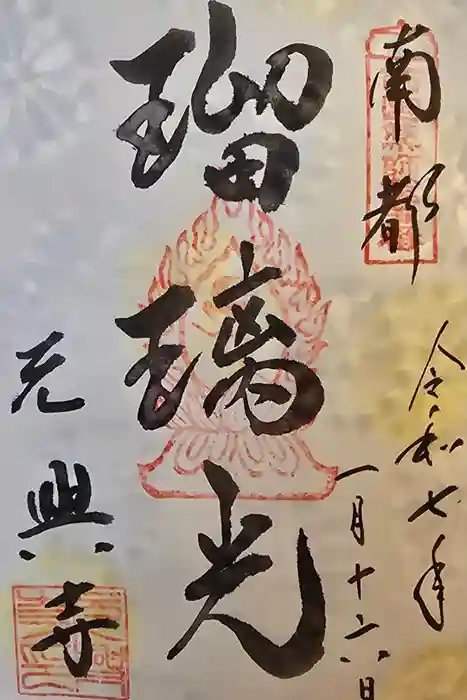 南都
令和七年
一月十六日
瑠璃光
元興寺